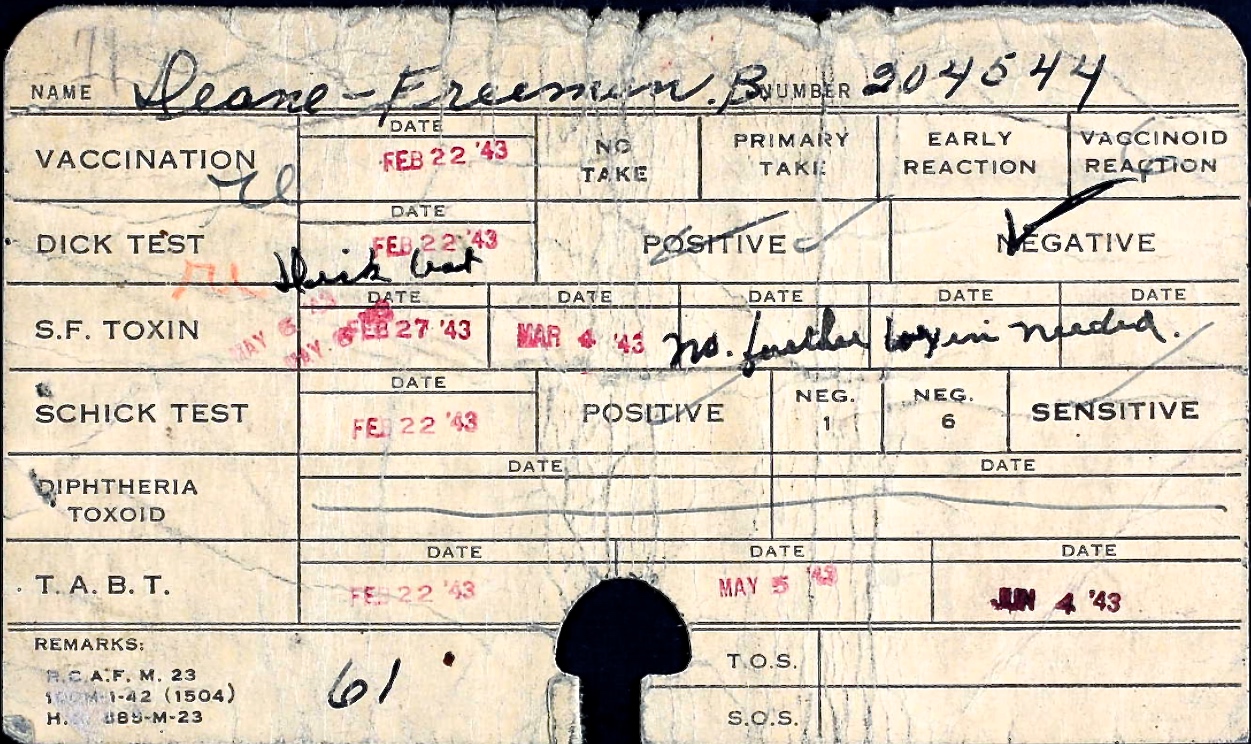 NAME Deane-Freeman. B. NUMBER 204544
VACCINATION DATE FEB 22 '43 NO TAKE PRIMARY TAKE EARLY REACTION VACCINOID REACTION
DICK TEST DATE FEB 22 '43 POSITIVE NEGATIVE
Dick test
S.F. TOXIN DATE DATE DATE DATE DATE
MAY 5 '43 FEB 27 '43 MAR 4 '43 No. further toxin needed.
SCHICK TEST DATE FEB 22 '43 POSITIVE NEG. 1 NEG. 6 SENSITIVE
DIPHTHERIA TOXOID DATE DATE
T. A. B. T. DATE FEB 22 '43 DATE MAY 5 '43 DATE JUN 4 '43
REMARKS:
R.C.A.F. M. 23
100M-1-42 (1504)
H. 885-M-23
61
T.O.S.
S.O.S.